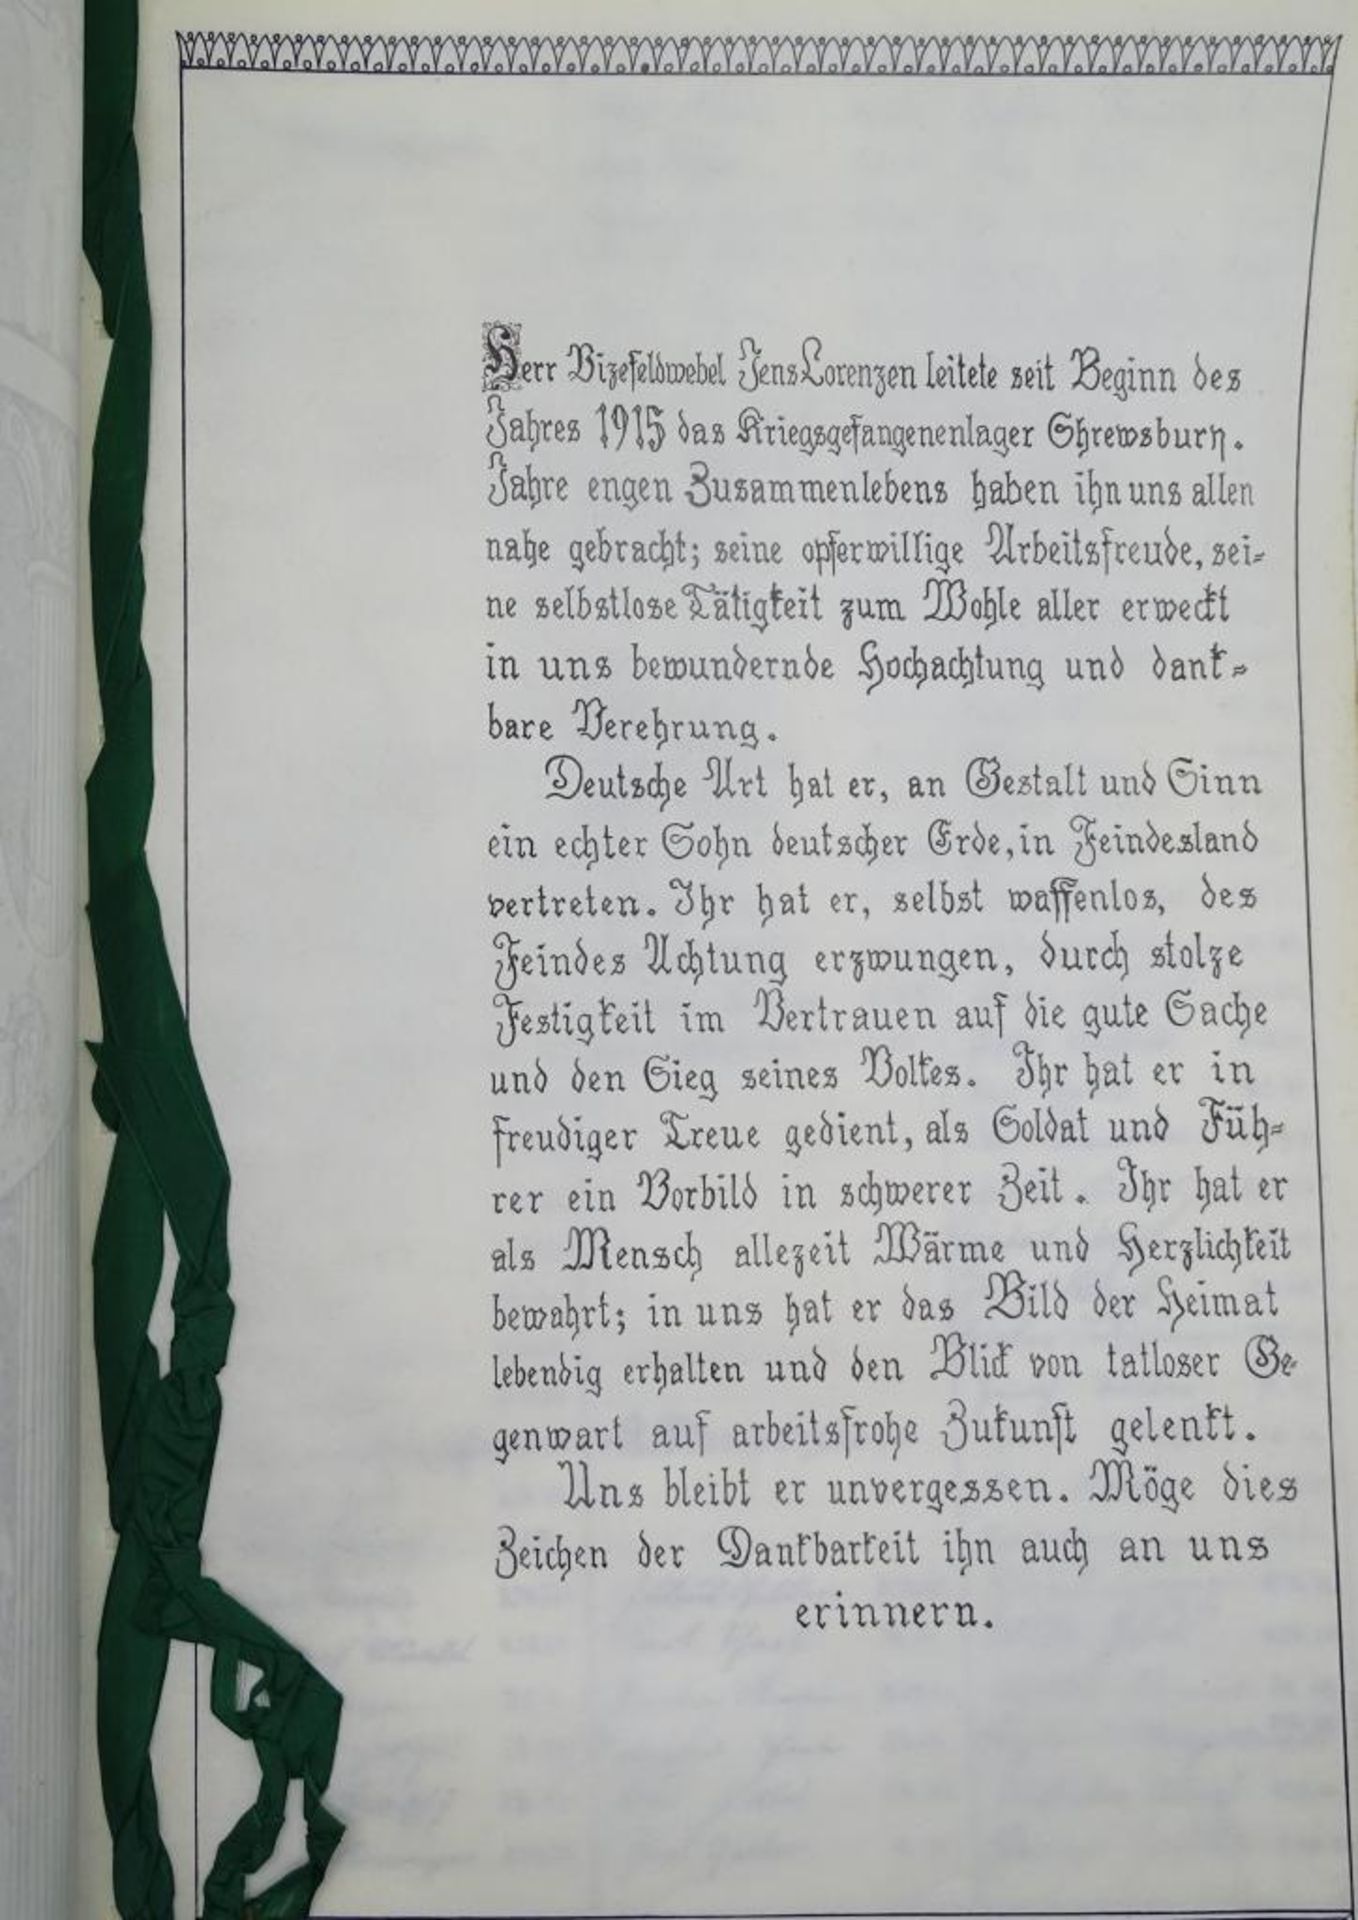 Herr Vizefeldwebel Jens Lorenzen leitete seit Beginn des
Jahres 1915 das Kriegsgefangenenlager Shrewsbury.
Jahre engen Zusammenlebens haben ihn uns allen
nahe gebracht; seine opferwillige Arbeitsfreude, sei=
ne selbstlose Tätigkeit zum Wohle aller erweckt
in uns bewundernde Hochachtung und dank=
bare Verehrung.
Deutsche Art hat er, an Gestalt und Sinn
ein echter Sohn deutscher Erde, in Feindesland
vertreten. Ihr hat er, selbst waffenlos, des
Feindes Achtung erzwungen, durch stolze
Festigkeit im Vertrauen auf die gute Sache
und den Sieg seines Volkes. Ihr hat er in
freudiger Treue gedient, als Soldat und Füh=
rer ein Vorbild in schwerer Zeit. Ihr hat er
als Mensch allezeit Wärme und Herzlichkeit
bewahrt; in uns hat er das Bild der Heimat
lebendig erhalten und den Blick von tatloser Ge=
genwart auf arbeitsfrohe Zukunft gelenkt.
Uns bleibt er unvergessen. Möge dies
Zeichen der Dankbarkeit ihn auch an uns
erinnern.